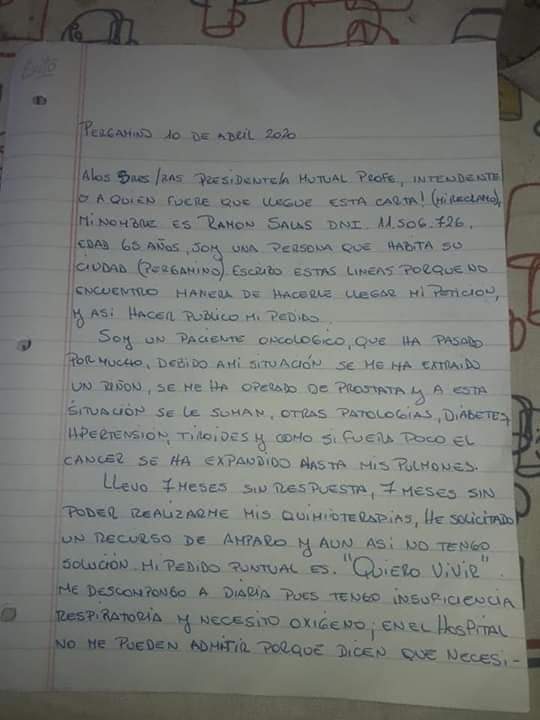 PERGAMINO 10 DE ABRIL 2020
A LOS SRES/RAS PRESIDENTE/A MUTUAL PROFE, INTENDENTE
O A QUIEN FUERE QUE LLEGUE ESTA CARTA! (MI RECLAMO),
MI NOMBRE ES RAMON SALAS DNI. 11.506.726.
EDAD 65 AÑOS, SOY UNA PERSONA QUE HABITA SU
CIUDAD (PERGAMINO) ESCRIBO ESTAS LINEAS PORQUE NO
ENCUENTRO MANERA DE HACERLE LLEGAR MI PETICION,
Y ASI HACER PUBLICO MI PEDIDO.
SOY UN PACIENTE ONCOLOGICO, QUE HA PASADO
POR MUCHO, DEBIDO A MI SITUACIÓN SE ME HA EXTRAIDO
UN RIÑON, SE ME HA OPERADO DE PROSTATA Y A ESTA
SITUACIÓN SE LE SUMAN, OTRAS PATOLOGÍAS, DIABETES,
HPERTENSION, TIROIDES Y COMO SI FUERA POCO EL
CANCER SE HA EXPANDIDO HASTA MIS PULMONES.
LLEVO 7 MESES SIN RESPUESTA, 7 MESES SIN
PODER REALIZARME MIS QUIMIOTERAPIAS, HE SOLICITADO
UN RECURSO DE AMPARO Y AUN ASI NO TENGO
SOLUCIÓN. MI PEDIDO PUNTUAL ES. "QUIERO VIVIR".
ME DESCOMPONGO A DIARIA PUES TENGO INSUFICIENCIA
RESPIRATORIA Y NECESITO OXÍGENO; EN EL HOSPITAL
NO ME PUEDEN ADMITIR PORQUE DICEN QUE NECESI-